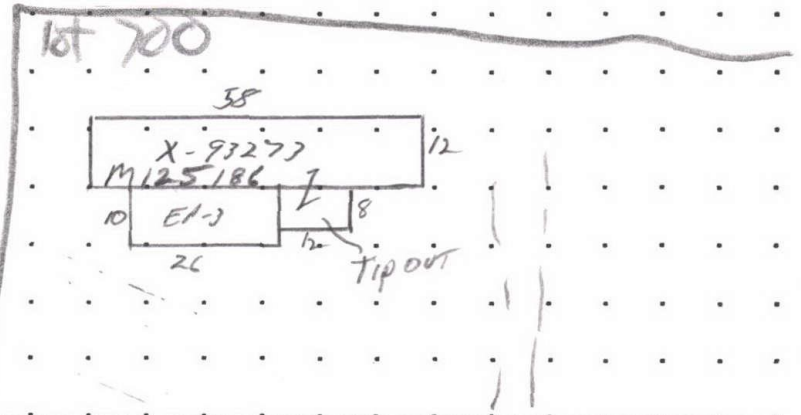 lot 700
58
X-93273
12
M125186
10
EP-3
8
12
26
TIP OUT